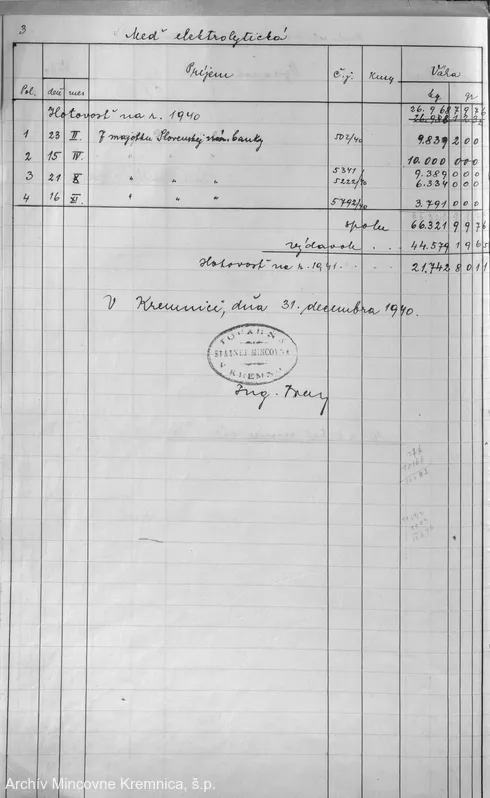 3
Meď elektrolytická
Príjem Č.j. Kusy Váha
Pol. deň mes kg gr
Hotovosť na r. 1940 26.968 7976
1 23 II. Z majetku Slovenskej nár. banky 502/40 9.839 200
2 15 IV. " " " 10.000 000
3 21 X " " " 5341/ 9.389 000
5222/40 6.334 000
4 16 XI. " " " 5792/40 3.791 000
spolu 66.321 9976
výdavok . . 44.579 1965
Hotovosť na r. 1941 . . . 21.742 8011
V Kremnici, dňa 31. decembra 1940.
ŠTÁTNEJ MINCOVNE
V KREMNICI
Ing.
Archív Mincovne Kremnica, š.p.